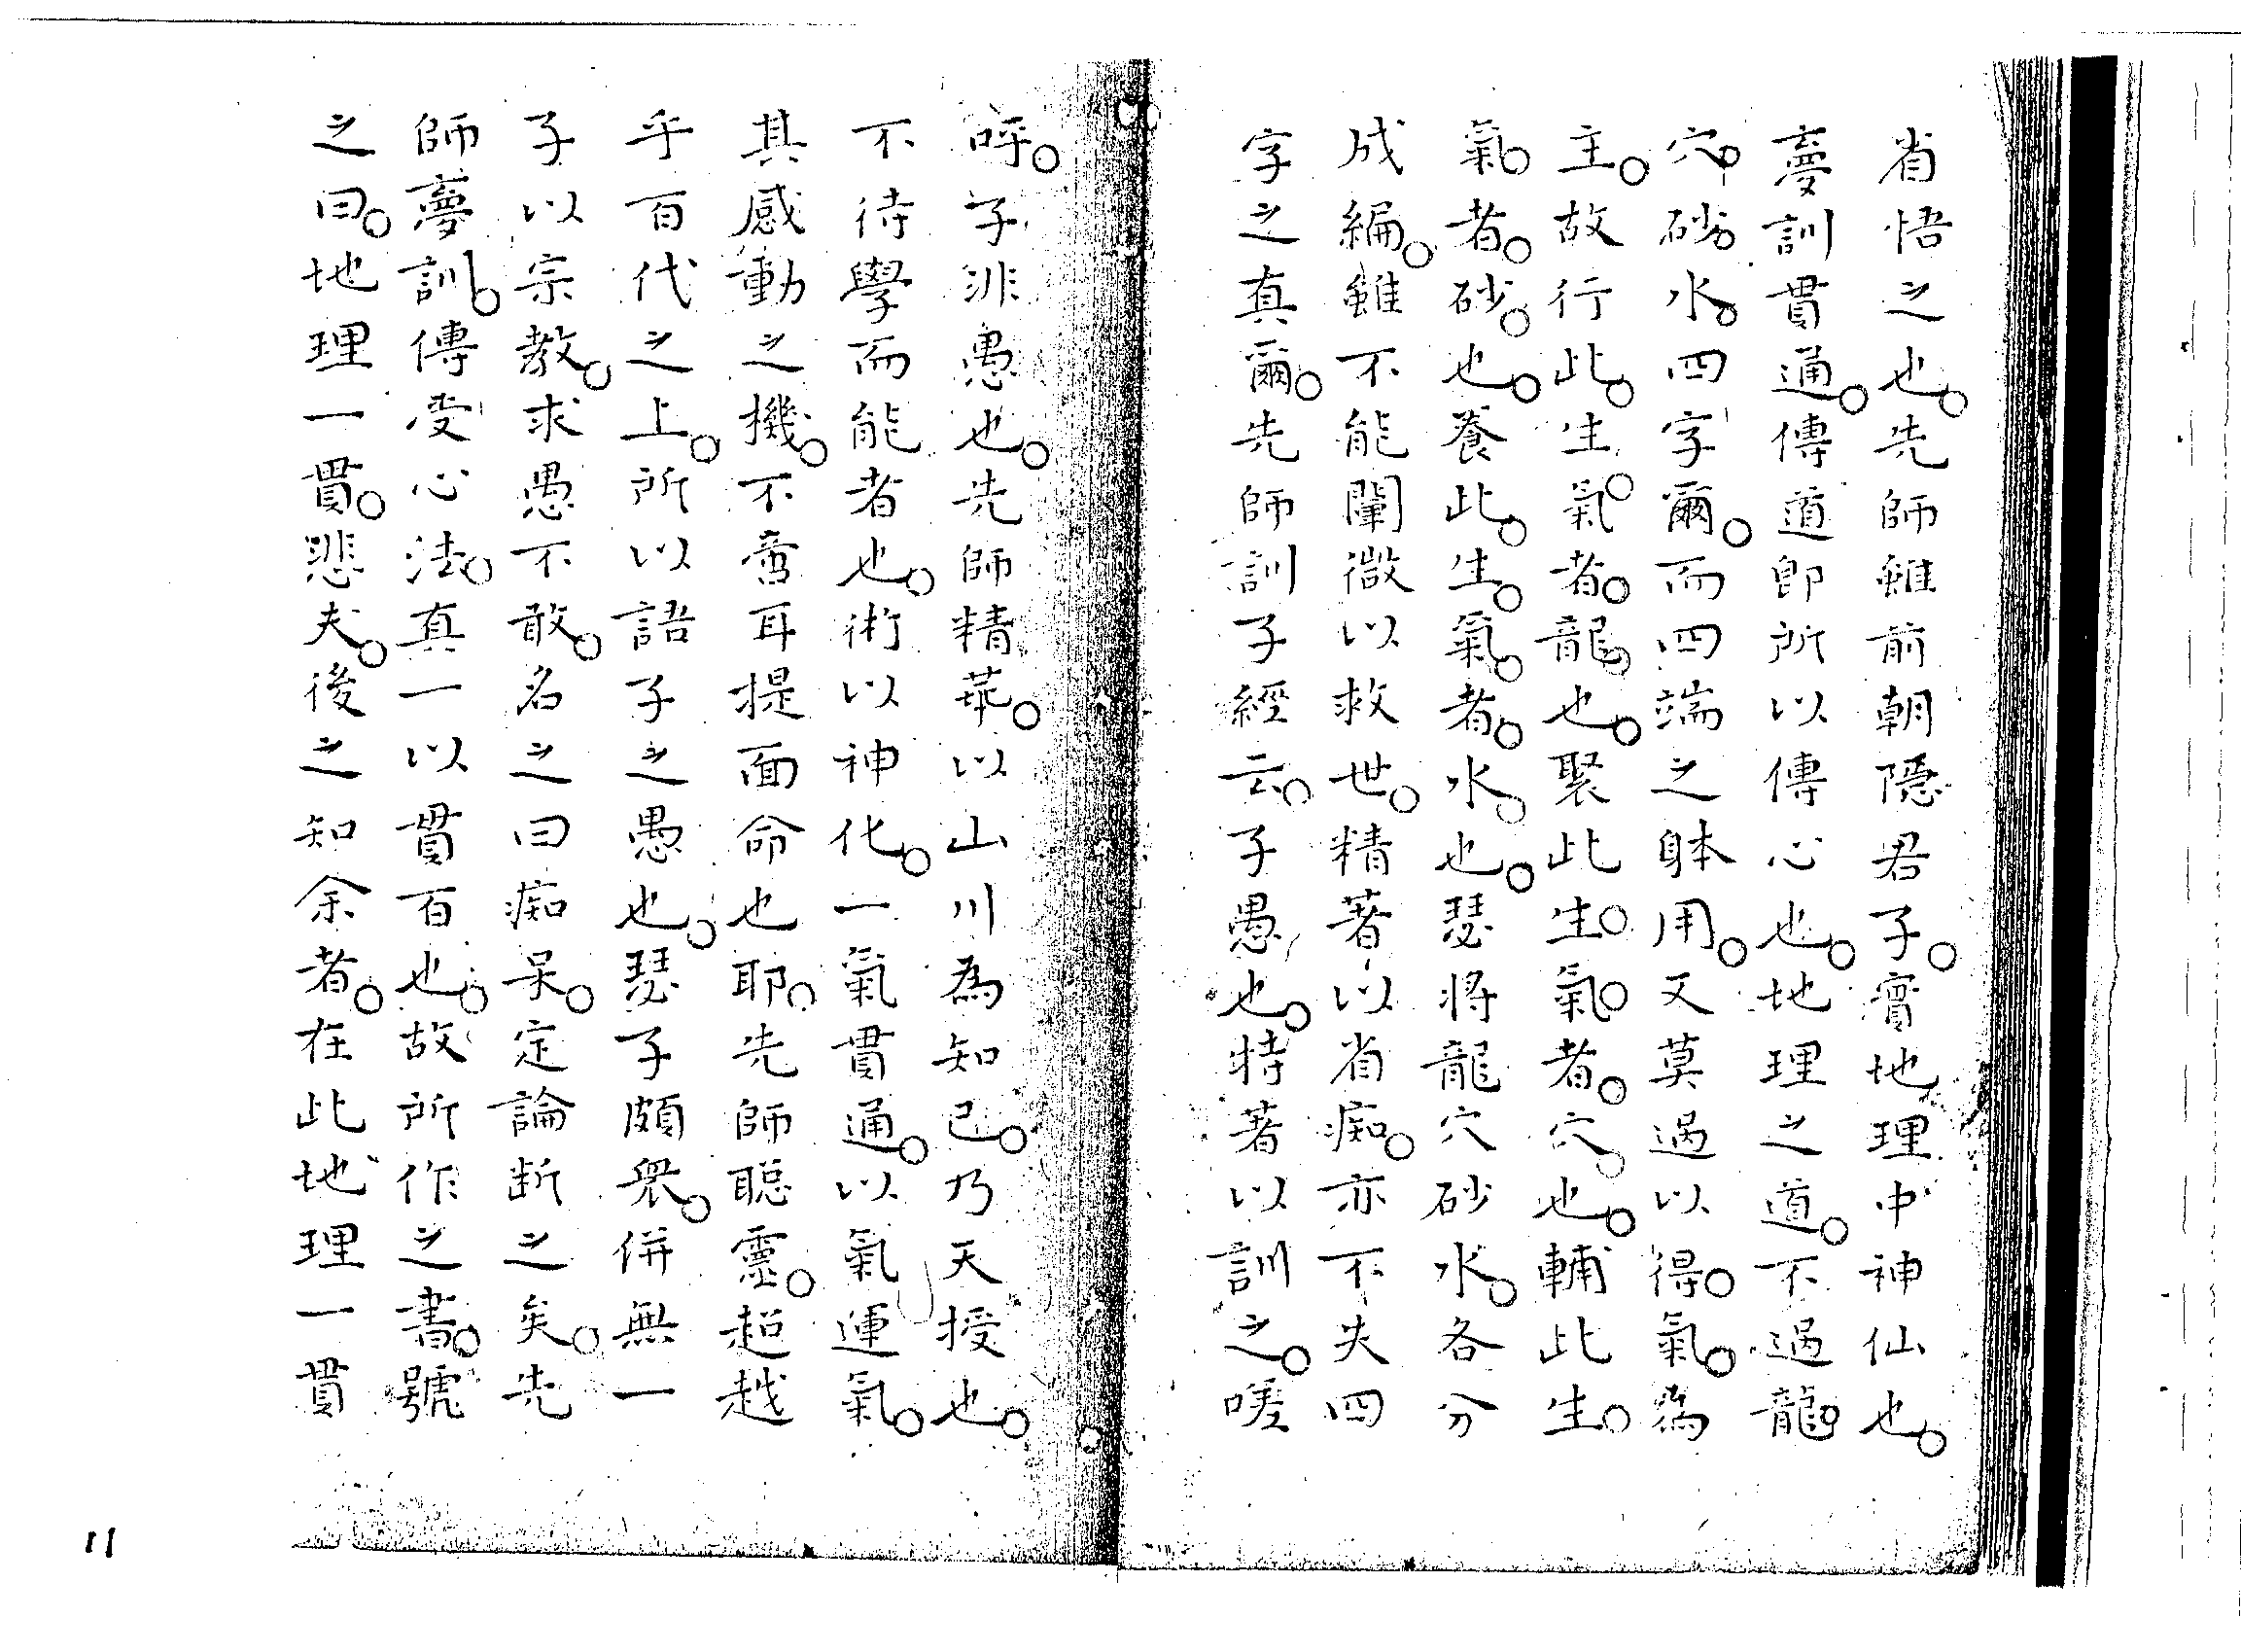 省悟之也先師雖前朝隱君子實地理中神仙也
夢訓貫通傳道即所以傳心也地理之道不過龍
穴砂水四字爾而四端之躰用又莫過以得氣為
主故行此生氣者龍也聚此生氣者穴也輔此生
氣者砂也養此生氣者水也瑟將龍穴砂水各分
成編雖不能闡微以救世精著以省痴亦不失四
字之真爾先師訓子經云子愚也特著以訓之嗟
呼子非愚也先師精華以山川為知己乃天授也
不待學而能者也術以神化一氣貫通以氣運氣
其感動之機不啻耳提面命也耶先師聪靈超越
乎百代之上所以語子之愚也瑟子頗衆併無一
子以宗教求愚不敢名之曰痴呆定論断之矣先
師夢訓傳受心法真一以貫百也故所作之書號
之曰地理一貫悲夫後之知余者在此地理一貫
11